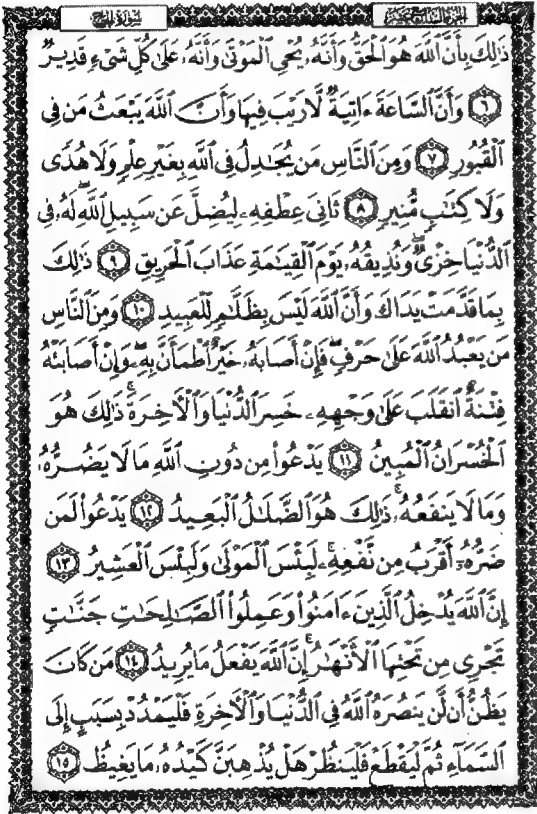 سُورَةُ الحَجِّ الجزء السابع عشر
ذَٰلِكَ بِأَنَّ ٱللَّهَ هُوَ ٱلْحَقُّ وَأَنَّهُۥ يُحْىِ ٱلْمَوْتَىٰ وَأَنَّهُۥ عَلَىٰ كُلِّ شَىْءٍ قَدِيرٌ
﴿٦﴾ وَأَنَّ ٱلسَّاعَةَ ءَاتِيَةٌ لَّا رَيْبَ فِيهَا وَأَنَّ ٱللَّهَ يَبْعَثُ مَن فِى
ٱلْقُبُورِ ﴿٧﴾ وَمِنَ ٱلنَّاسِ مَن يُجَٰدِلُ فِى ٱللَّهِ بِغَيْرِ عِلْمٍ وَلَا هُدًى
وَلَا كِتَٰبٍ مُّنِيرٍ ﴿٨﴾ ثَانِىَ عِطْفِهِۦ لِيُضِلَّ عَن سَبِيلِ ٱللَّهِۖ لَهُۥ فِى
ٱلدُّنْيَا خِزْىٌۖ وَنُذِيقُهُۥ يَوْمَ ٱلْقِيَٰمَةِ عَذَابَ ٱلْحَرِيقِ ﴿٩﴾ ذَٰلِكَ
بِمَا قَدَّمَتْ يَدَاكَ وَأَنَّ ٱللَّهَ لَيْسَ بِظَلَّٰمٍ لِّلْعَبِيدِ ﴿١٠﴾ وَمِنَ ٱلنَّاسِ
مَن يَعْبُدُ ٱللَّهَ عَلَىٰ حَرْفٍۖ فَإِنْ أَصَابَهُۥ خَيْرٌ ٱطْمَأَنَّ بِهِۦۖ وَإِنْ أَصَابَتْهُ
فِتْنَةٌ ٱنقَلَبَ عَلَىٰ وَجْهِهِۦ خَسِرَ ٱلدُّنْيَا وَٱلْأَخِرَةَۚ ذَٰلِكَ هُوَ
ٱلْخُسْرَانُ ٱلْمُبِينُ ﴿١١﴾ يَدْعُوا۟ مِن دُونِ ٱللَّهِ مَا لَا يَضُرُّهُۥ
وَمَا لَا يَنفَعُهُۥۚ ذَٰلِكَ هُوَ ٱلضَّلَٰلُ ٱلْبَعِيدُ ﴿١٢﴾ يَدْعُوا۟ لَمَن
ضَرُّهُۥٓ أَقْرَبُ مِن نَّفْعِهِۦۚ لَبِئْسَ ٱلْمَوْلَىٰ وَلَبِئْسَ ٱلْعَشِيرُ ﴿١٣﴾
إِنَّ ٱللَّهَ يُدْخِلُ ٱلَّذِينَ ءَامَنُوا۟ وَعَمِلُوا۟ ٱلصَّٰلِحَٰتِ جَنَّٰتٍ
تَجْرِى مِن تَحْتِهَا ٱلْأَنْهَٰرُۚ إِنَّ ٱللَّهَ يَفْعَلُ مَا يُرِيدُ ﴿١٤﴾ مَن كَانَ
يَظُنُّ أَن لَّن يَنصُرَهُ ٱللَّهُ فِى ٱلدُّنْيَا وَٱلْأَخِرَةِ فَلْيَمْدُدْ بِسَبَبٍ إِلَى
ٱلسَّمَآءِ ثُمَّ لْيَقْطَعْ فَلْيَنظُرْ هَلْ يُذْهِبَنَّ كَيْدُهُۥ مَا يَغِيظُ ﴿١٥﴾